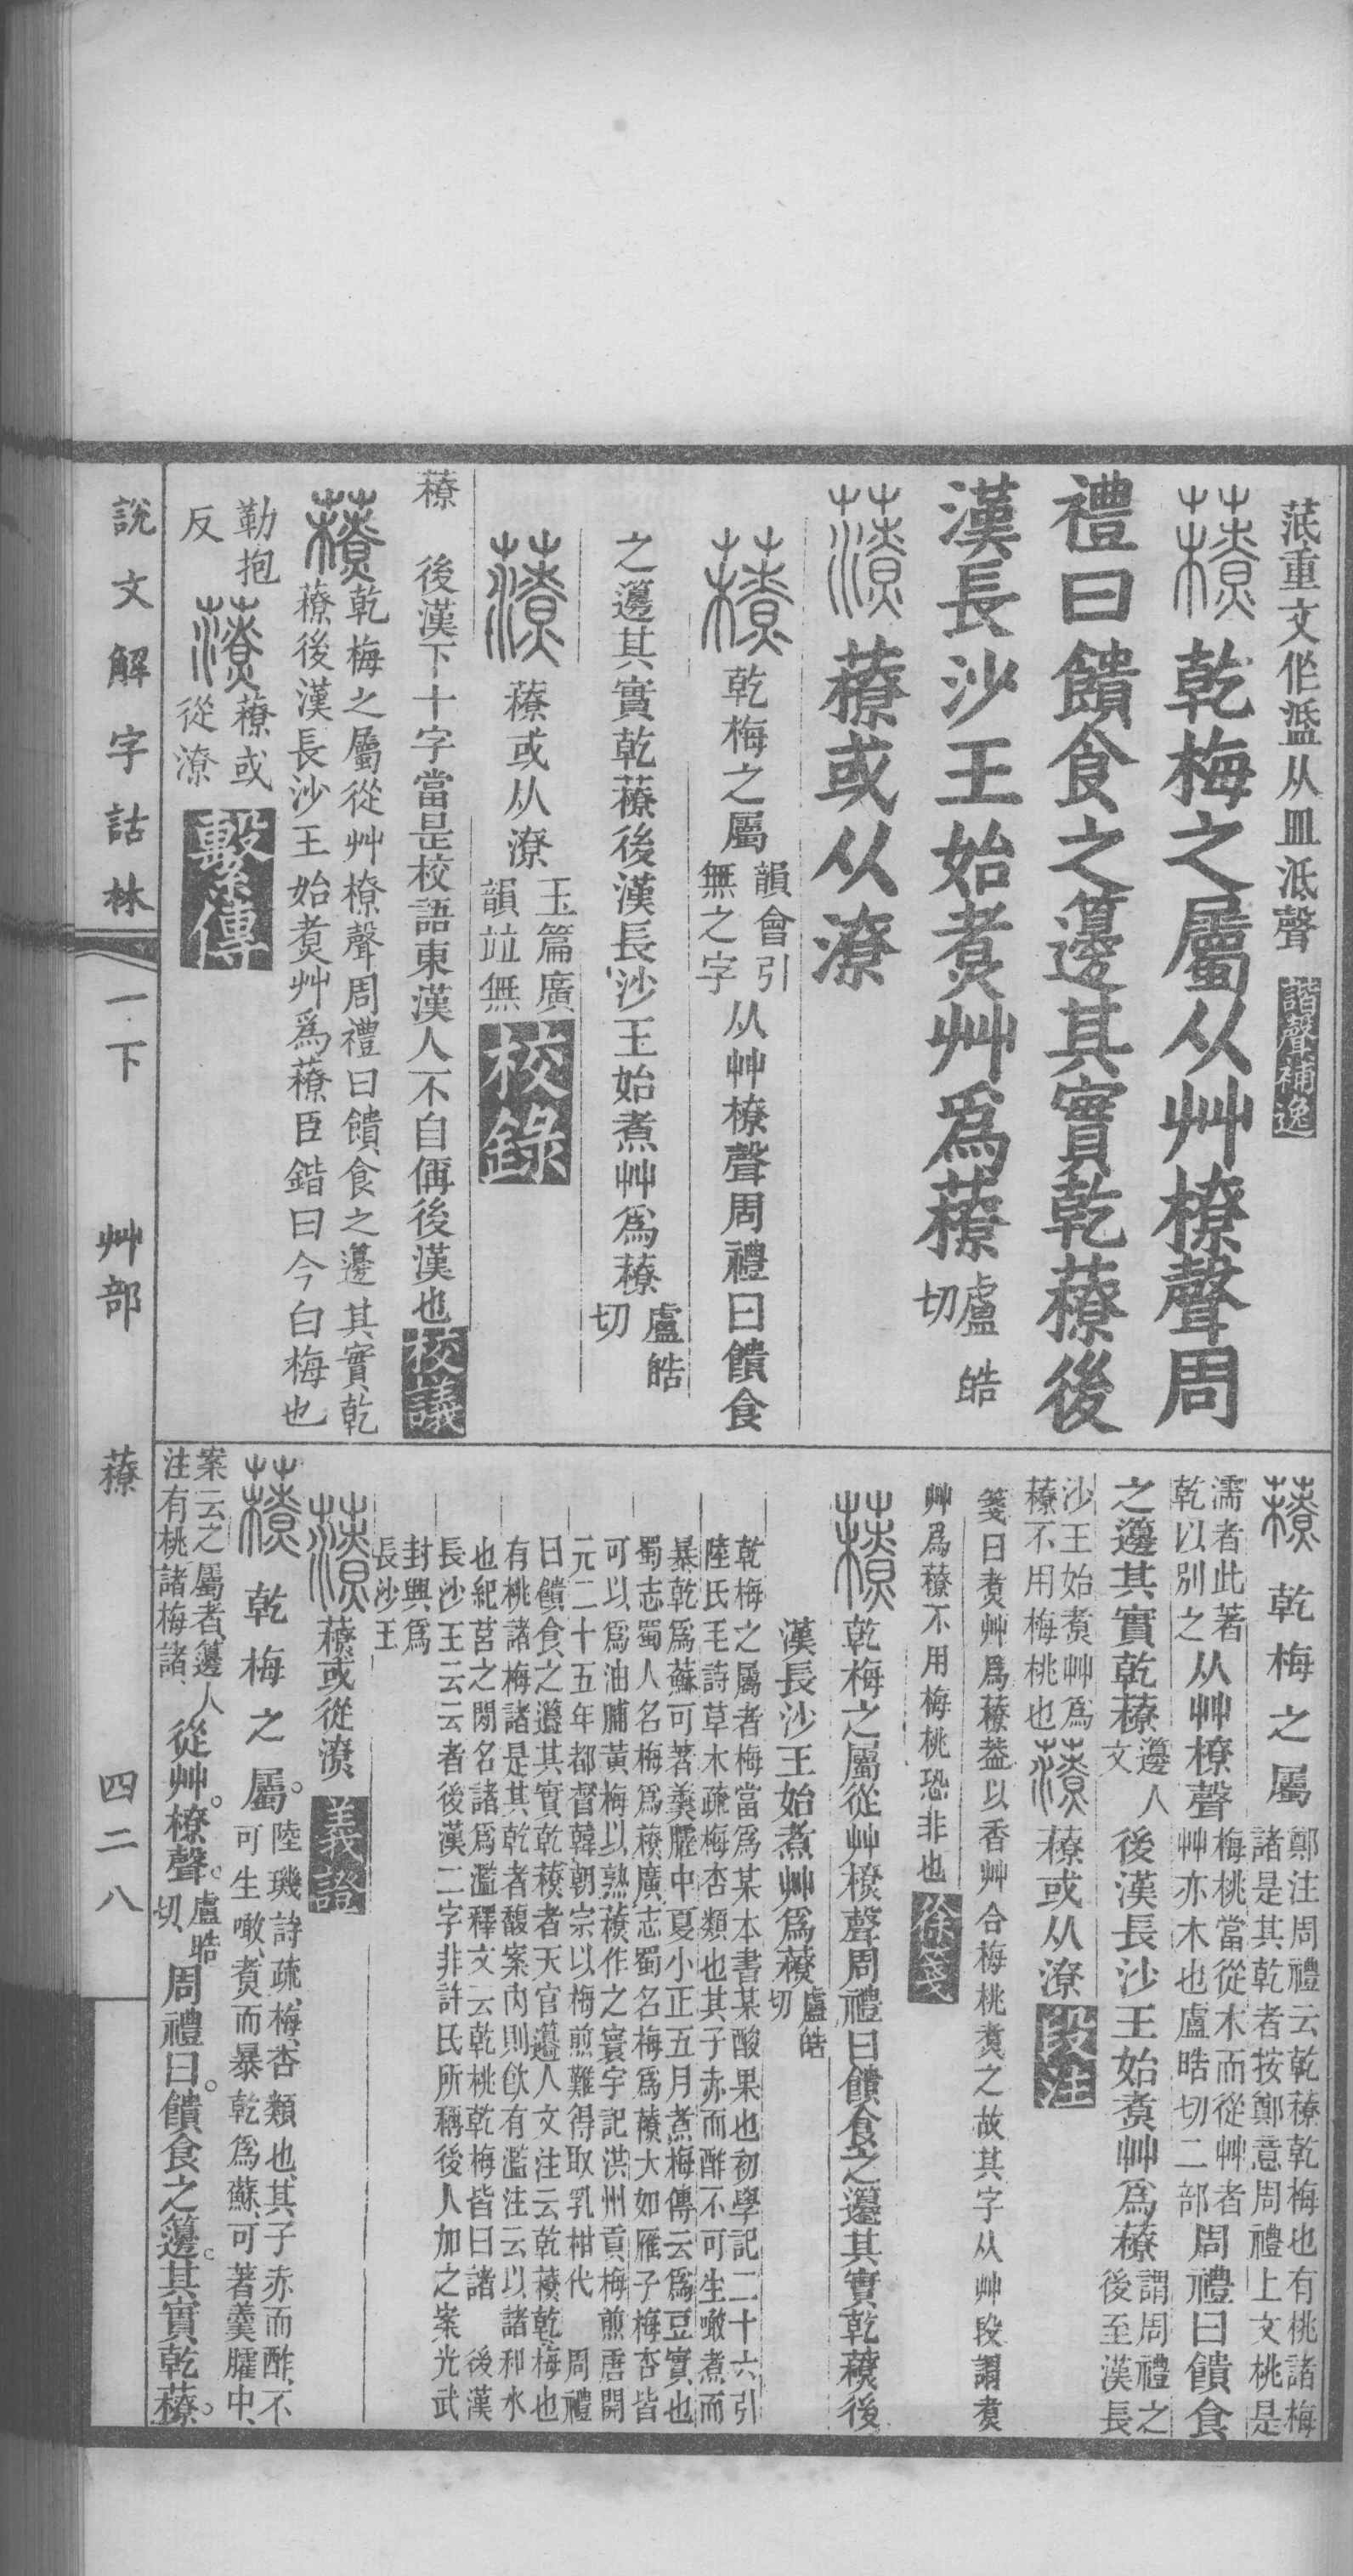 菭重文作𧂜从皿泜聲 諧聲補逸
䕩 乾梅之屬从艸橑聲周
禮曰饋食之籩其實乾䕩後
漢長沙王始煑艸爲䕩 盧皓切
𧂇 䕩或从潦
䕩 乾梅之屬 韻會引無之字 从艸橑聲周禮曰饋食
之籩其實乾䕩後漢長沙王始煮艸爲䕩 盧皓切
𧂇 䕩或从潦 玉篇廣韻竝無 校錄
䕩 後漢下十字當是校語東漢人不自偁後漢也 校議
䕩 乾梅之屬從艸橑聲周禮曰饋食之籩其實乾
䕩後漢長沙王始煑艸爲䕩臣鍇曰今白梅也
勒抱反 𧂇 䕩或從潦 繫傳
䕩 乾梅之屬 鄭注周禮云乾䕩乾梅也有桃諸梅
諸是其乾者按鄭意周禮上文桃是
濡者此著乾以別之 从艸橑聲 梅桃當從木而從艸者艸亦木也盧晧切二部 周禮曰饋食
之籩其實乾䕩 籩人文 後漢長沙王始煑艸爲䕩 謂周禮之後至漢長
沙王始煑艸爲䕩不用梅桃也 𧂇 䕩或从潦 段注
箋曰煑艸爲䕩葢以香艸合梅桃煑之故其字从艸段謂煑
艸爲䕩不用梅桃恐非也 徐箋
䕩 乾梅之屬從艸橑聲周禮曰饋食之籩其實乾䕩後
漢長沙王始煮艸爲䕩 盧皓切
乾梅之屬者梅當爲某本書某酸果也初學記二十六引
陸氏毛詩草木疏梅杏類也其子赤而酢不可生噉煮而
暴乾爲蘇可著羹臛中夏小正五月煮梅傳云爲豆實也
蜀志蜀人名梅爲䕩廣志蜀名梅爲䕩大如雁子梅杏皆
可以爲油脯黃梅以熟䕩作之寰宇記洪州貢梅煎唐開
元二十五年都督韓朝宗以梅煎難得取乳柑代 周禮
曰饋食之籩其實乾䕩者天官籩人文注云乾䕩乾梅也
有桃諸梅諸是其乾者馥案內則飮有濫注云以諸和水
也紀莒之閒名諸爲濫釋文云乾桃乾梅皆曰諸 後漢
長沙王云云者後漢二字非許氏所稱後人加之案光武
封興爲
長沙王
𧂇 䕩或從潦 義證
䕩 乾梅之屬。陸璣詩疏、梅、杏類也、其子赤而酢、不
可生噉、煑而暴乾爲蘇、可著羹臛中、
案云之屬者、籩人
注有桃諸梅諸、 從艸。橑聲。盧晧切、 周禮曰。饋食之籩。其實乾䕩。
說文解字詁林 一下 艸部 䕩 四二八